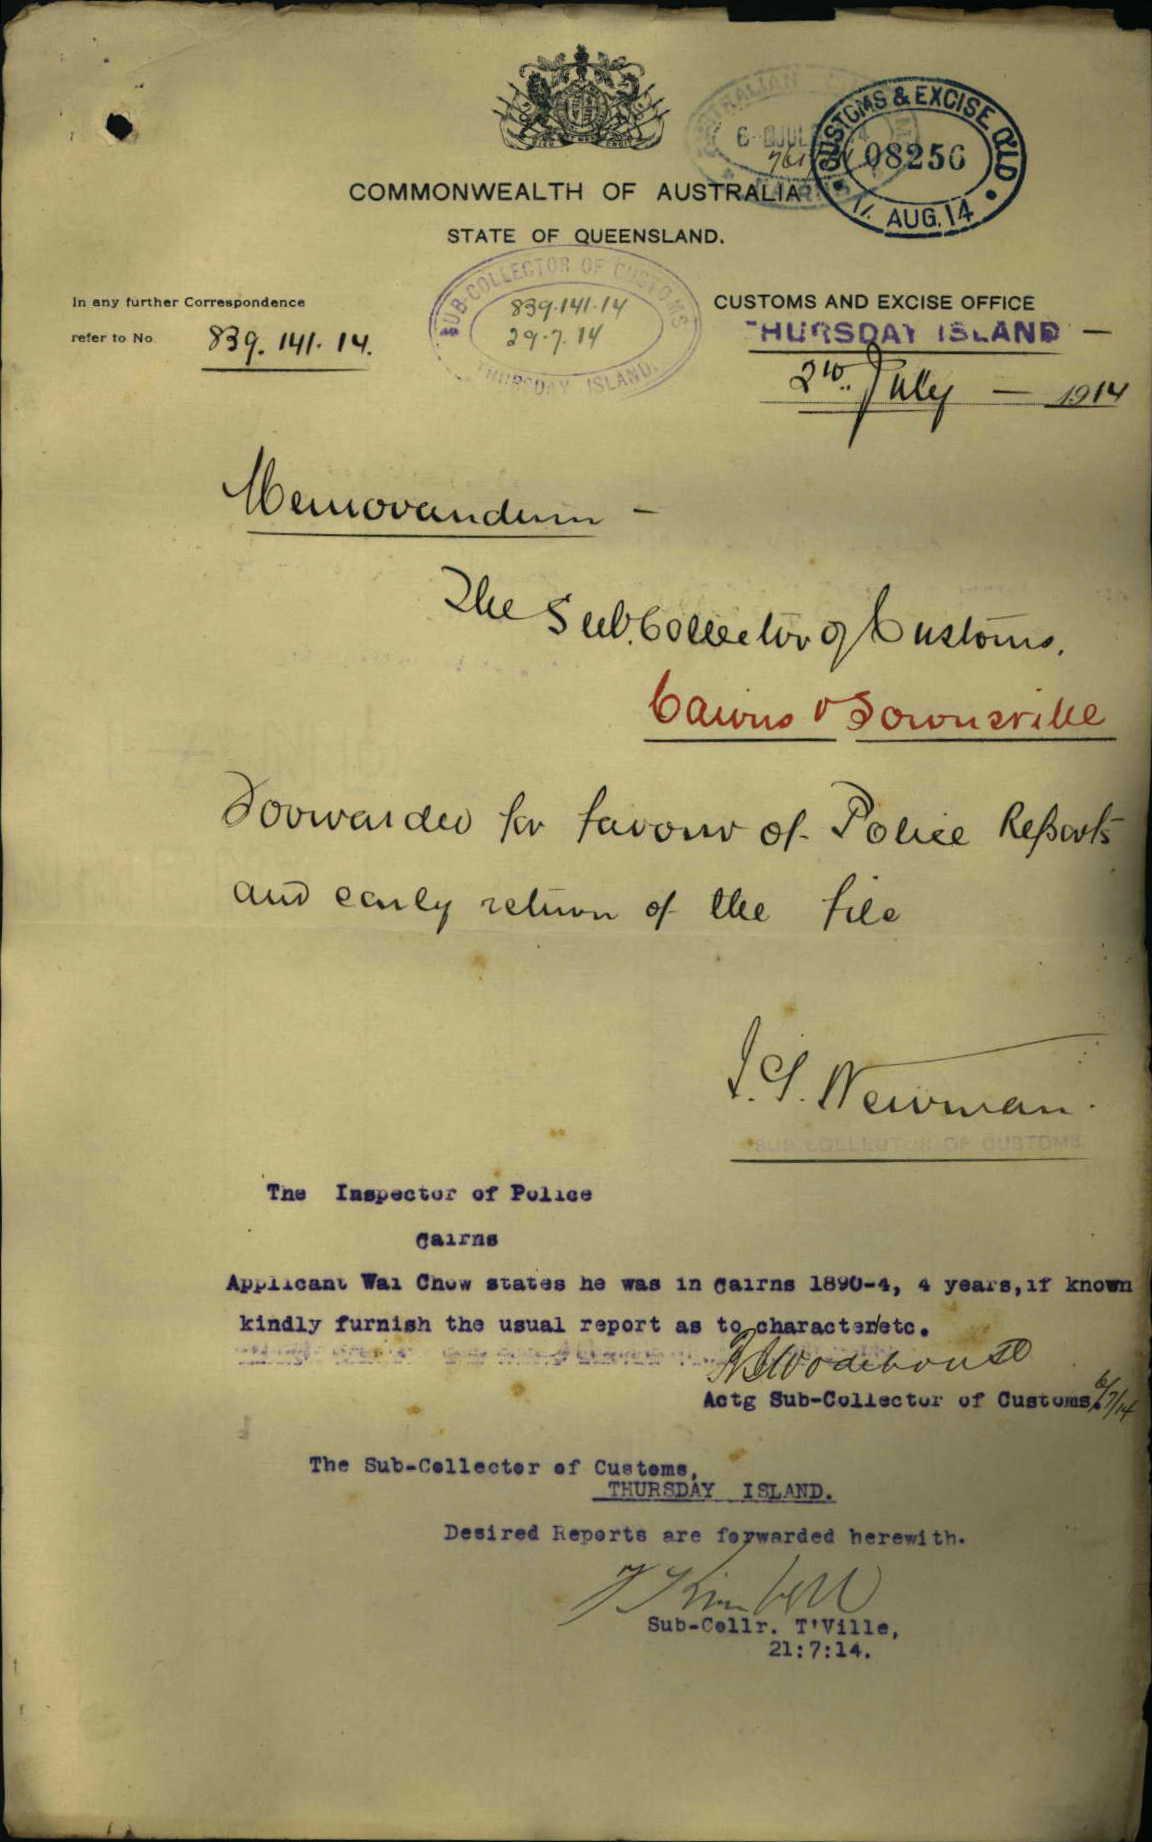 CUSTOMS & EXCISE Q'LD
08256
11. AUG. 14
6 JUL
COMMONWEALTH OF AUSTRALIA
STATE OF QUEENSLAND.
SUB-COLLECTOR OF CUSTOMS
839.141.14
29.7.14
THURSDAY ISLAND.
In any further Correspondence
refer to No. 839. 141. 14.
CUSTOMS AND EXCISE OFFICE
THURSDAY ISLAND —
2nd July — 1914
Memorandum —
The Sub. Collector of Customs.
Cairns & Townsville
Forwarded for favour of Police Reports
and early return of the file
Newman.
SUB COLLECTOR OF CUSTOMS
The Inspector of Police
Cairns
Applicant Wai Chow states he was in Cairns 1890-4, 4 years,if known
kindly furnish the usual report as to character/etc.
Wodehouse
Actg Sub-Collector of Customs. 6/7/14
The Sub-Collector of Customs,
THURSDAY ISLAND.
Desired Reports are forwarded herewith.
Sub-Collr. T'Ville,
21:7:14.